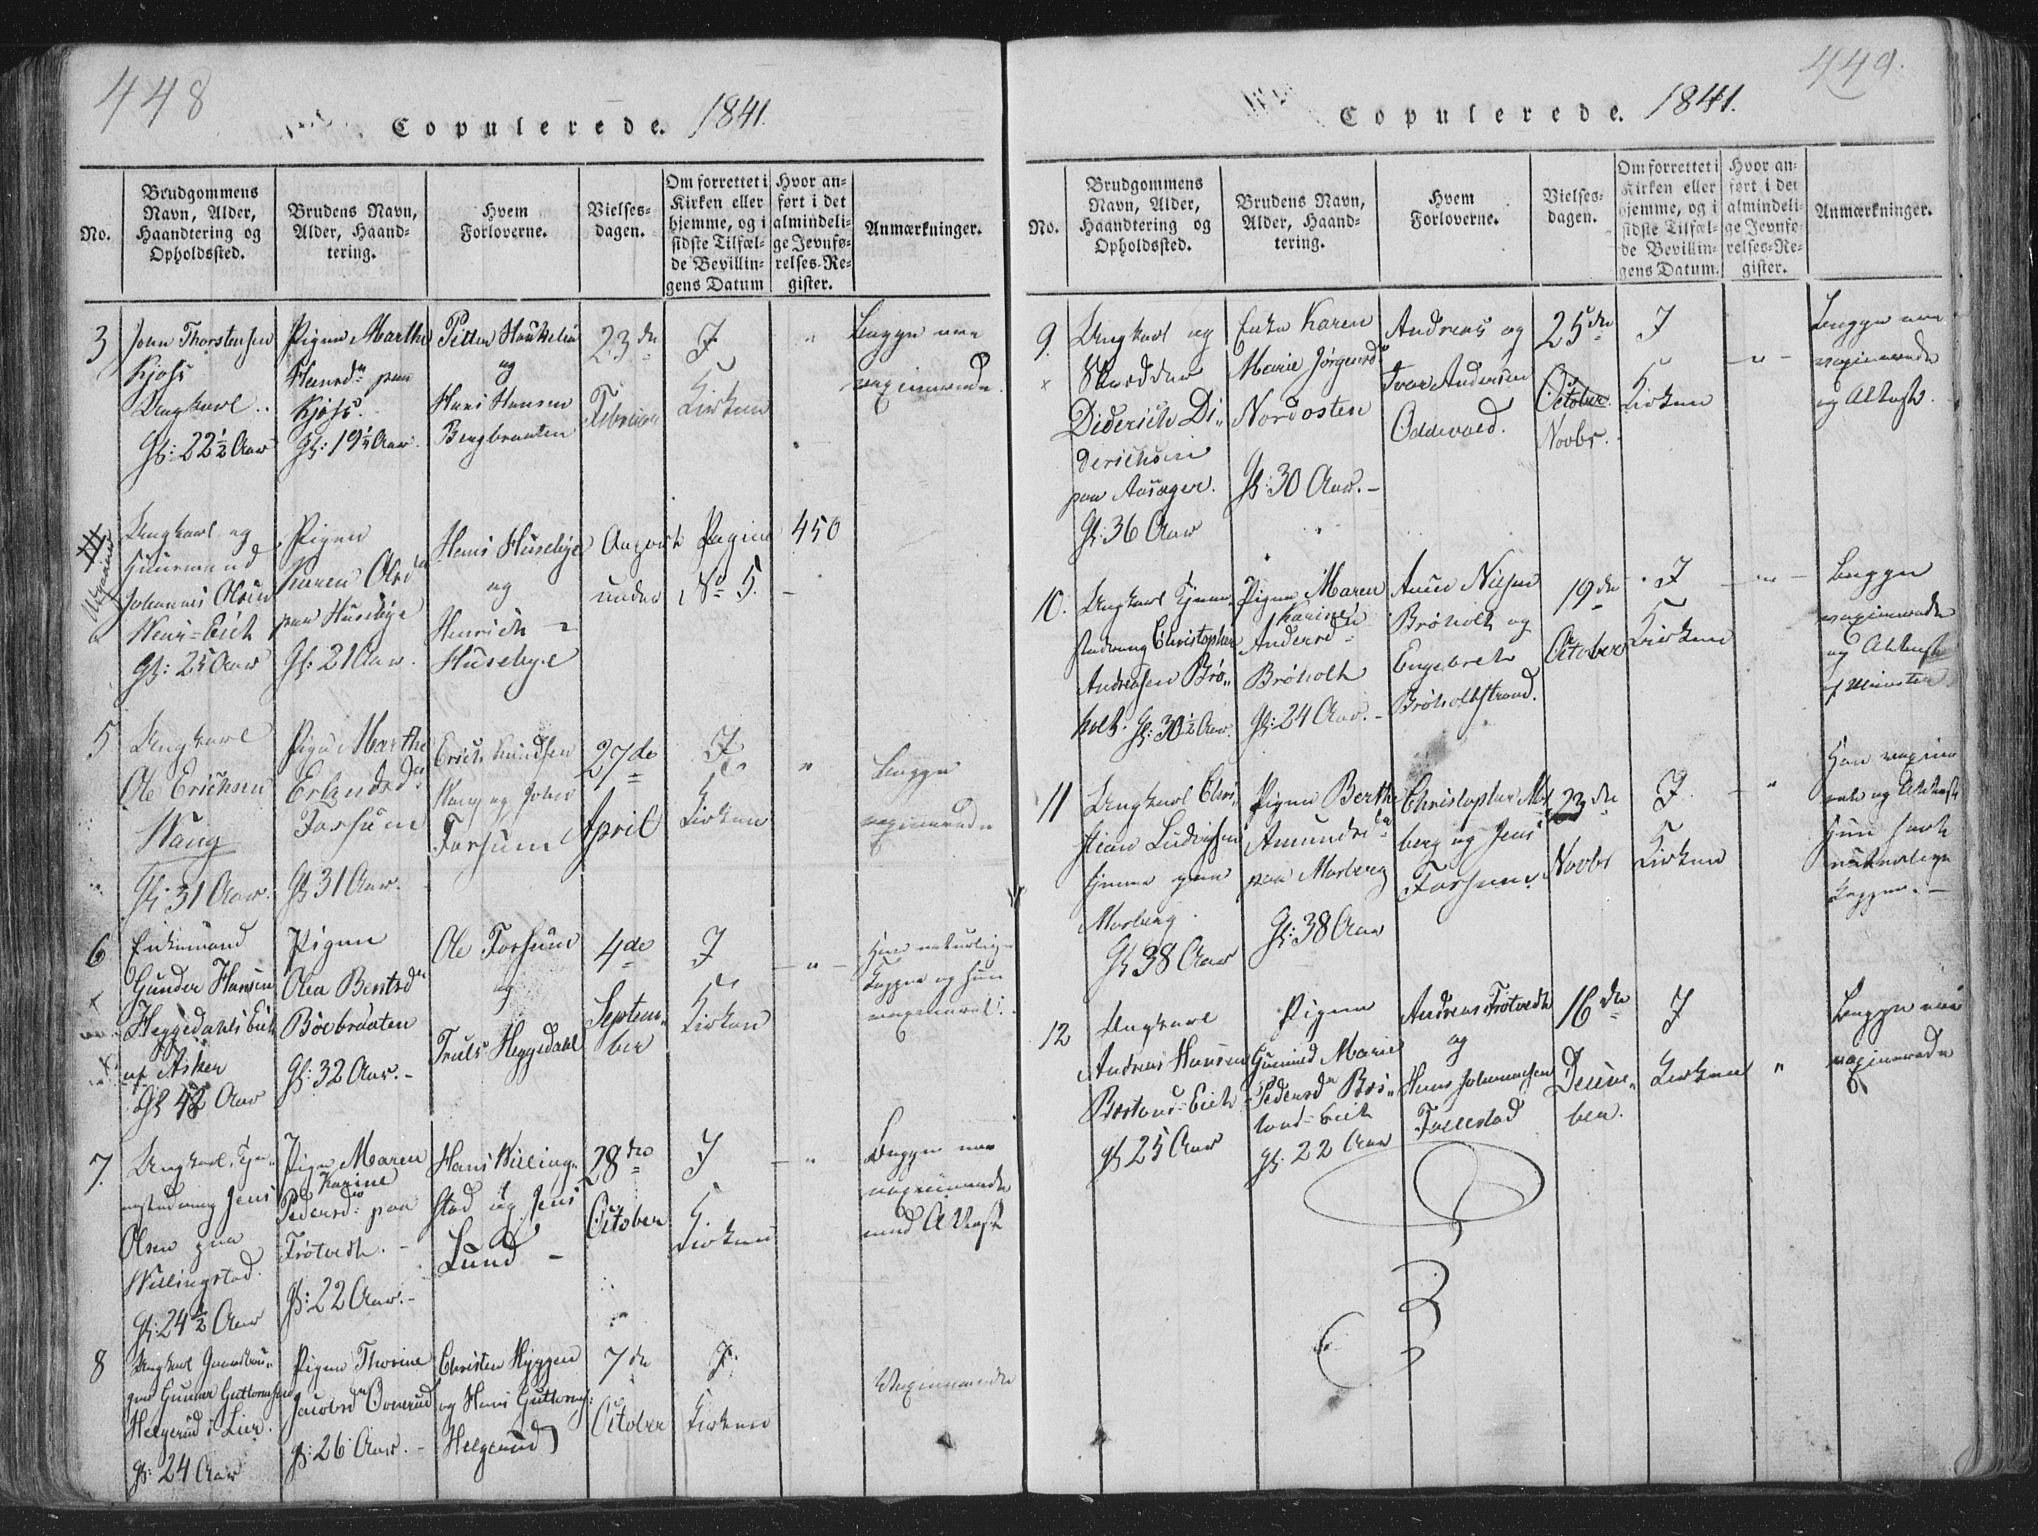 448
Copulerede. 1841.
No.
Brudgommens
Navn, Alder,
Haandtering og
Opholdssted.
Brudens Navn,
Alder, Haand-
tering.
Hvem
Forloverne.
Vielses-
dagen.
Om forrettet i
Kirken eller
hjemme, og i
sidste Tilfæl-
de Bevillin-
gens Datum
Hvor an-
ført i det
almindeli-
ge Jevnfø-
relses-Re-
gister.
Anmærkninger.
3
Thorstensen
Kjøss
Ungkarl
Gl: 22½ Aar
Pigen Marthe
Hansdr paa
Kjøss.
Gl: 19½ Aar.
og
Hans Hansen
Bergbraaten
23de
Februar
I
Kirken
Begge ere
vaxinerede
Ungkarl og
Huusmand
Johannes Olsen
Gl: 25 Aar
Pigen
Karen Olsdr
paa Husebye
Gl: 21 Aar.
Hans Husebye
og
Henrich
Husebye
August
under
Pagina
No 5.
450
5
Ungkarl
Ole Erichsen
Wang
Gl: 31 Aar.
Pigen Marthe
Erlandsdr
Forsum
Gl: 31 Aar.
Erich Knudsen
Wang og John
Forsum
27de
April
I
Kirken
"
Begge
vaxinerede
6
Enkemand
Gunder Hansen
Heggedahls Eie
af Asker
Pigen
Olea Bentsdr
Böebraaten
Gl: 32 Aar.
Ole Forsum
og
Truls Heggedahl
4de
Septem-
ber
I
Kirken
"
Han naturlige
Kopper og hun
vaxineret.
7.
Ungkarl, Tje-
nestedreng Jens
Olsen paa
Willingstad.
Gl: 24½ Aar
Pigen Maren
Karine
Pedersdr paa
Frötvedt.
Gl: 22 Aar.
Hans Willing-
stad og Jens
Lund
28de
October
I
Kirken
"
Begge ere
vaxinerede
med Attest
8
Ungkarl Gaardbru-
ger Gunder Guttormsen
Helgerud i Lier.
Gl: 24 Aar
Pigen Thorine
Jacobsdr Ovnerud
Gl: 26 Aar.
Christen Hyggen
og Hans Guttorms:
Helgerud
7de
October
I
Kirken
Vaxinerede
449.
Copulerede. 1841.
No.
Brudgommens
Navn, Alder,
Haandtering og
Opholdssted.
Brudens Navn,
Alder, Haand-
tering.
Hvem
Forloverne.
Vielses-
dagen.
Om forrettet i
Kirken eller
hjemme, og i
sidste Tilfæl-
de Bevillin-
gens Datum.
Hvor an-
ført i det
almindeli-
ge Jevnfø-
relses-Re-
gister.
Anmærkninger.
9.
Ungkarl og
Skrædder
Diderich Di-
derichsen
paa Aasager.
Gl: 36 Aar
Enke Karen
Marie Jörgensdr
Nordosten
Gl: 30 Aar.
Andreas og
Iver Andersen
Oddevald.
25de
October
Novbr.
I
Kirken
Begge ere
vaxinerede
og Attest.
10.
Ungkarl Tjene-
stedreng Christopher
Andersen Brö-
holt. Gl: 30½ Aar.
Pigen Maren
Karine
Andersdr
Bröholt
Gl: 24 Aar.
Nielsen
Bröholt og
Engebret
Bröholtstrand.
19de
October
I
Kirken
Begge
vaxinerede
og Attest
11
Ungkarl Chri-
stian Ludvigsen
paa
Morberg
Gl: 38 Aar
Pigen Berthe
Amundsdr
paa Morberg
Gl: 38 Aar
Christopher Mor-
berg og Jens
Forsum.
23de
Novbr
I
Kirken
Han vaxine-
ret og Attest
Hun havt
naturlige
Kopper.
12
Ungkarl
Andreas Hansen
Böeland-Eiet
Gl: 25 Aar
Pigen
Gunild Marie
Pedersdr
Gl: 22 Aar
Andreas Frötvedt
og
Hans Johannesen
Follestad
16de
Decem-
ber.
I
Kirken
"
Begge ere
vaxinerede